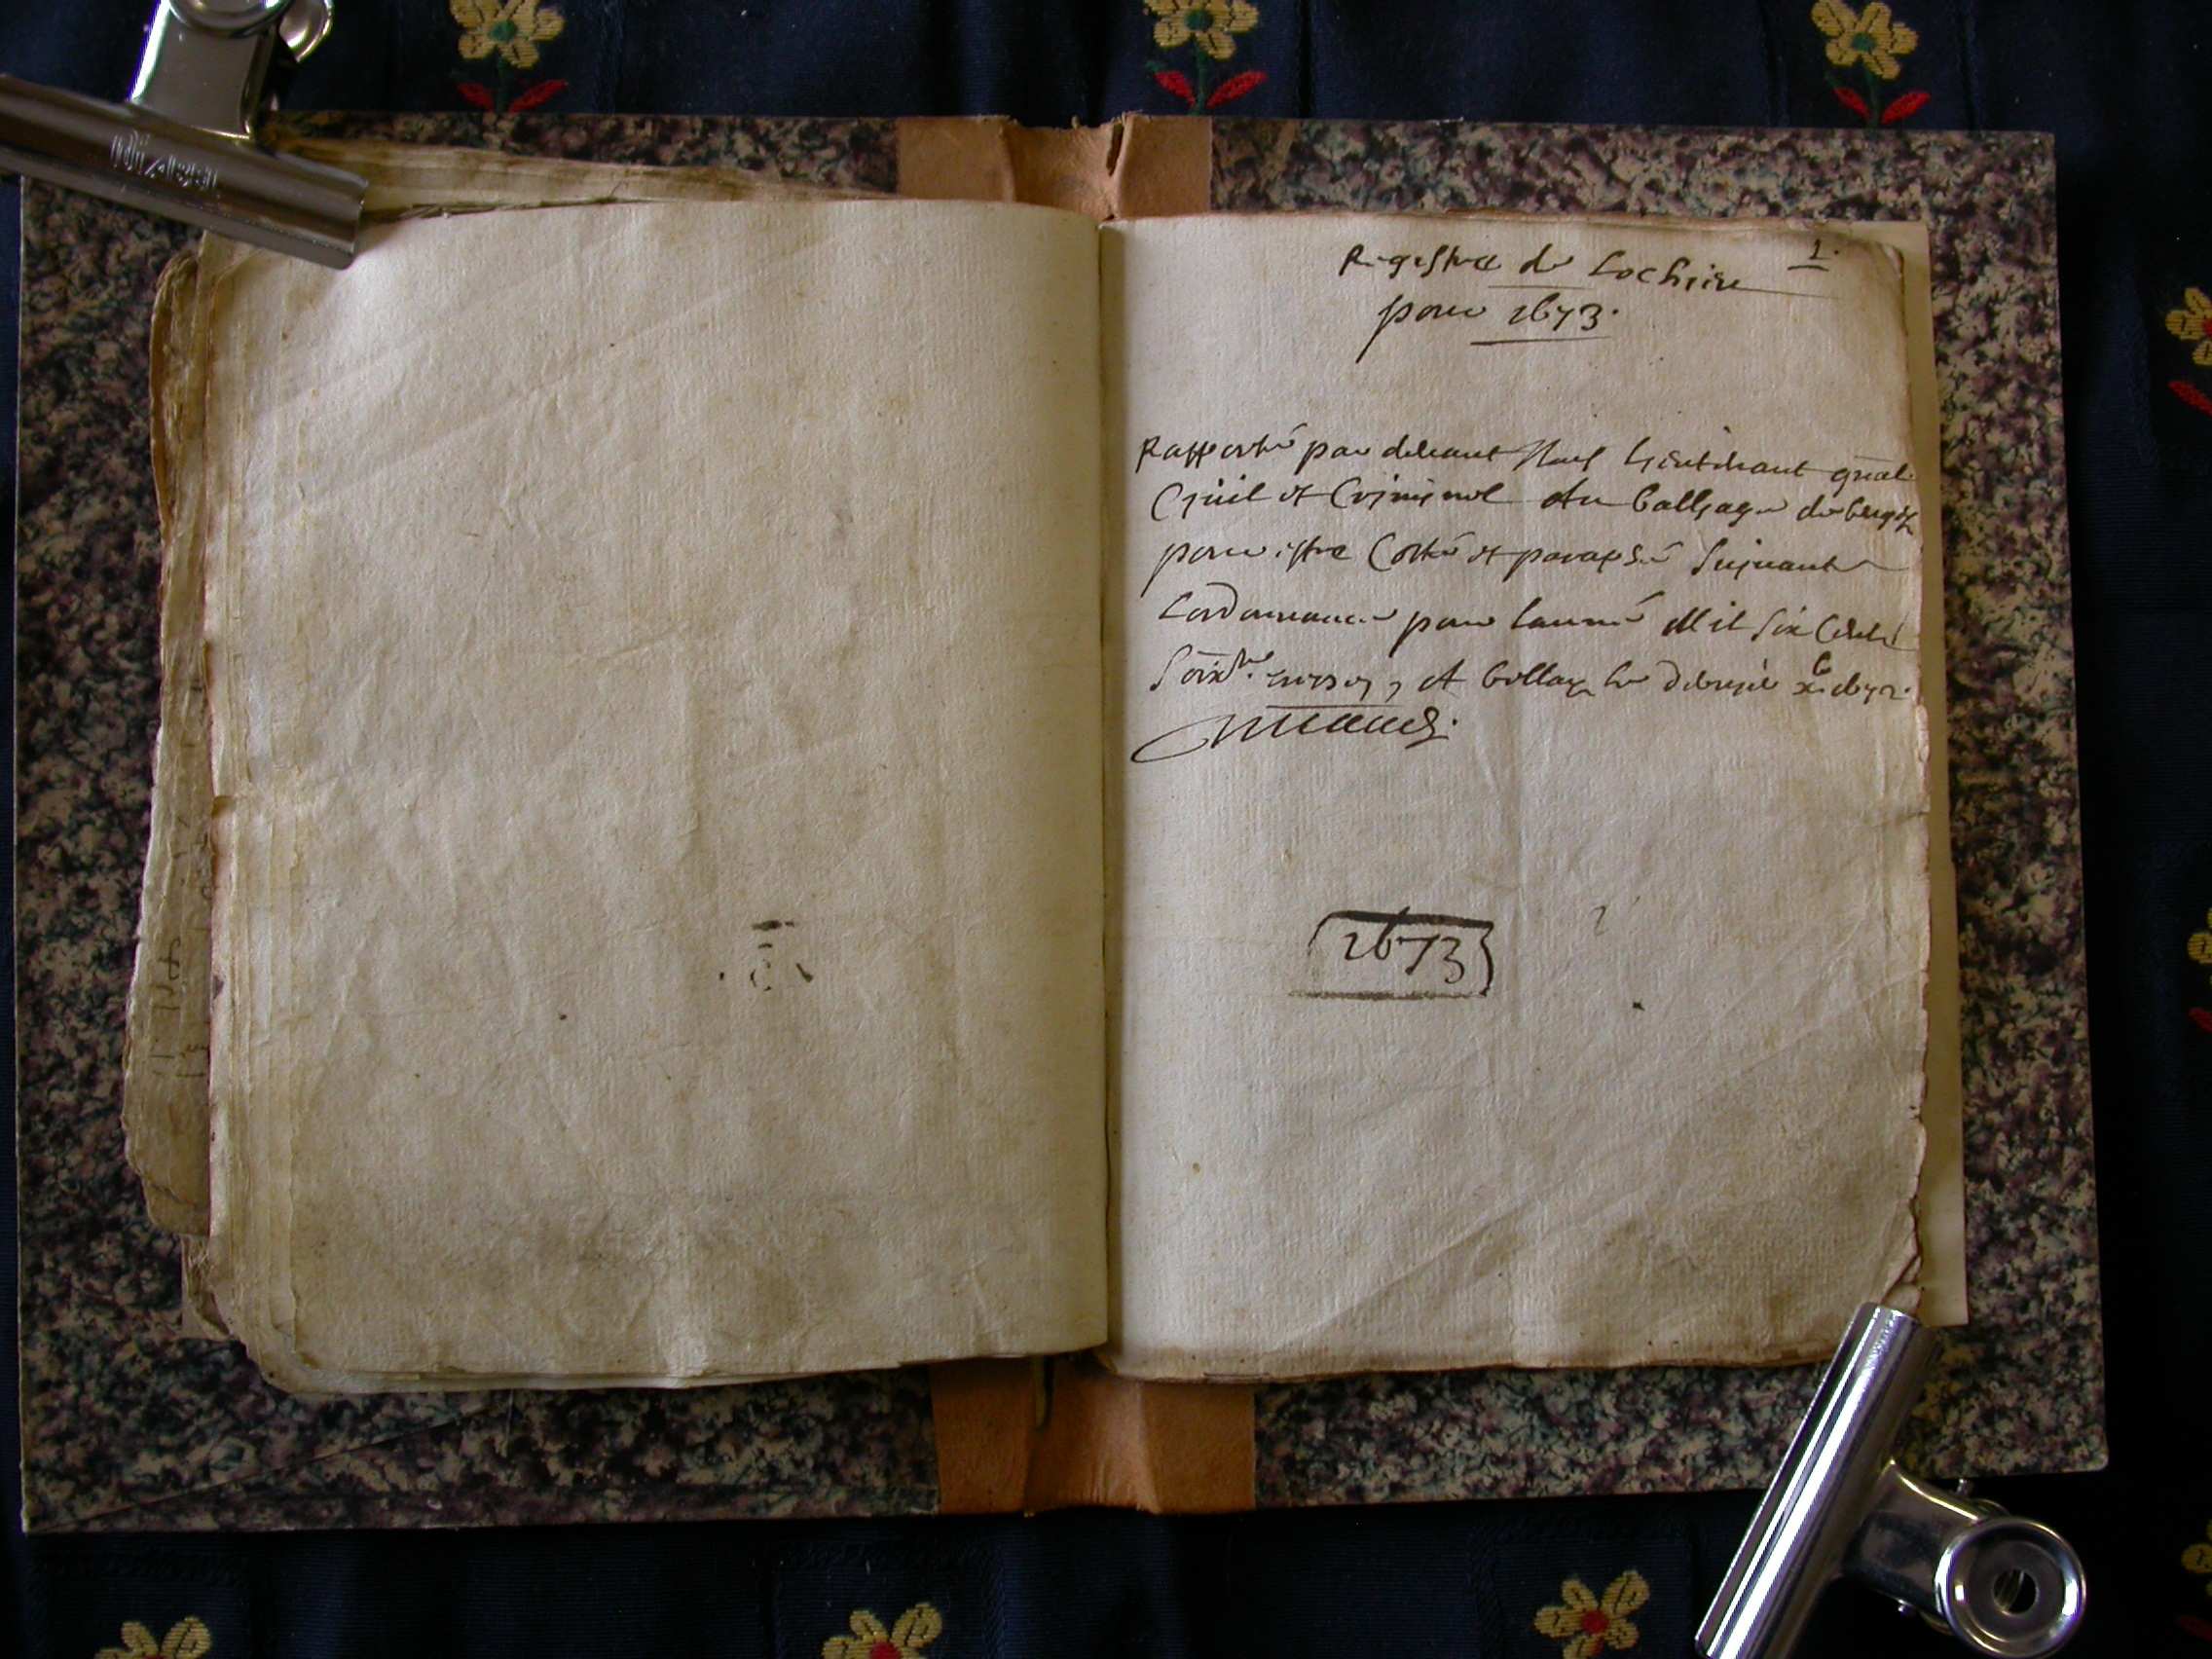 1.
Registre de Lochieu
pour 1673.
Rapporté par devant Nous Lieutenant gnal
Civil et Criminel au balliage de bugey
pour estre Cotté et paraphé suivant
Lordonnance pour lannée Mil six Cents
soixte treize, et bellay le
1673